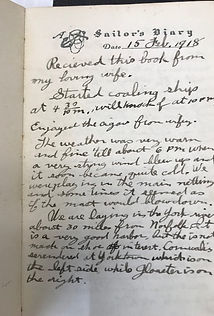 A Sailor's Diary
Date 15 Feb, 1918
Recieved this book from
my loving wife.
Started coaling ship
at 4 30 P.M., will knock f at 10 P.M.
Enjoyed the from wifey.
The weather was very warm
and fine till about 6 P.M. when
a very strong wind blew up and
it soon became quite cold. We
were playing in the main netting
and some times it seemed as
if the mast would blow down.
We are laying in the York river
about 30 miles from Norfolk. It
is a very good harbor but there is not
much on shore of interest. Cornwallis
surendered at Yorktown which is on
the left side while Gloster is on
the right.